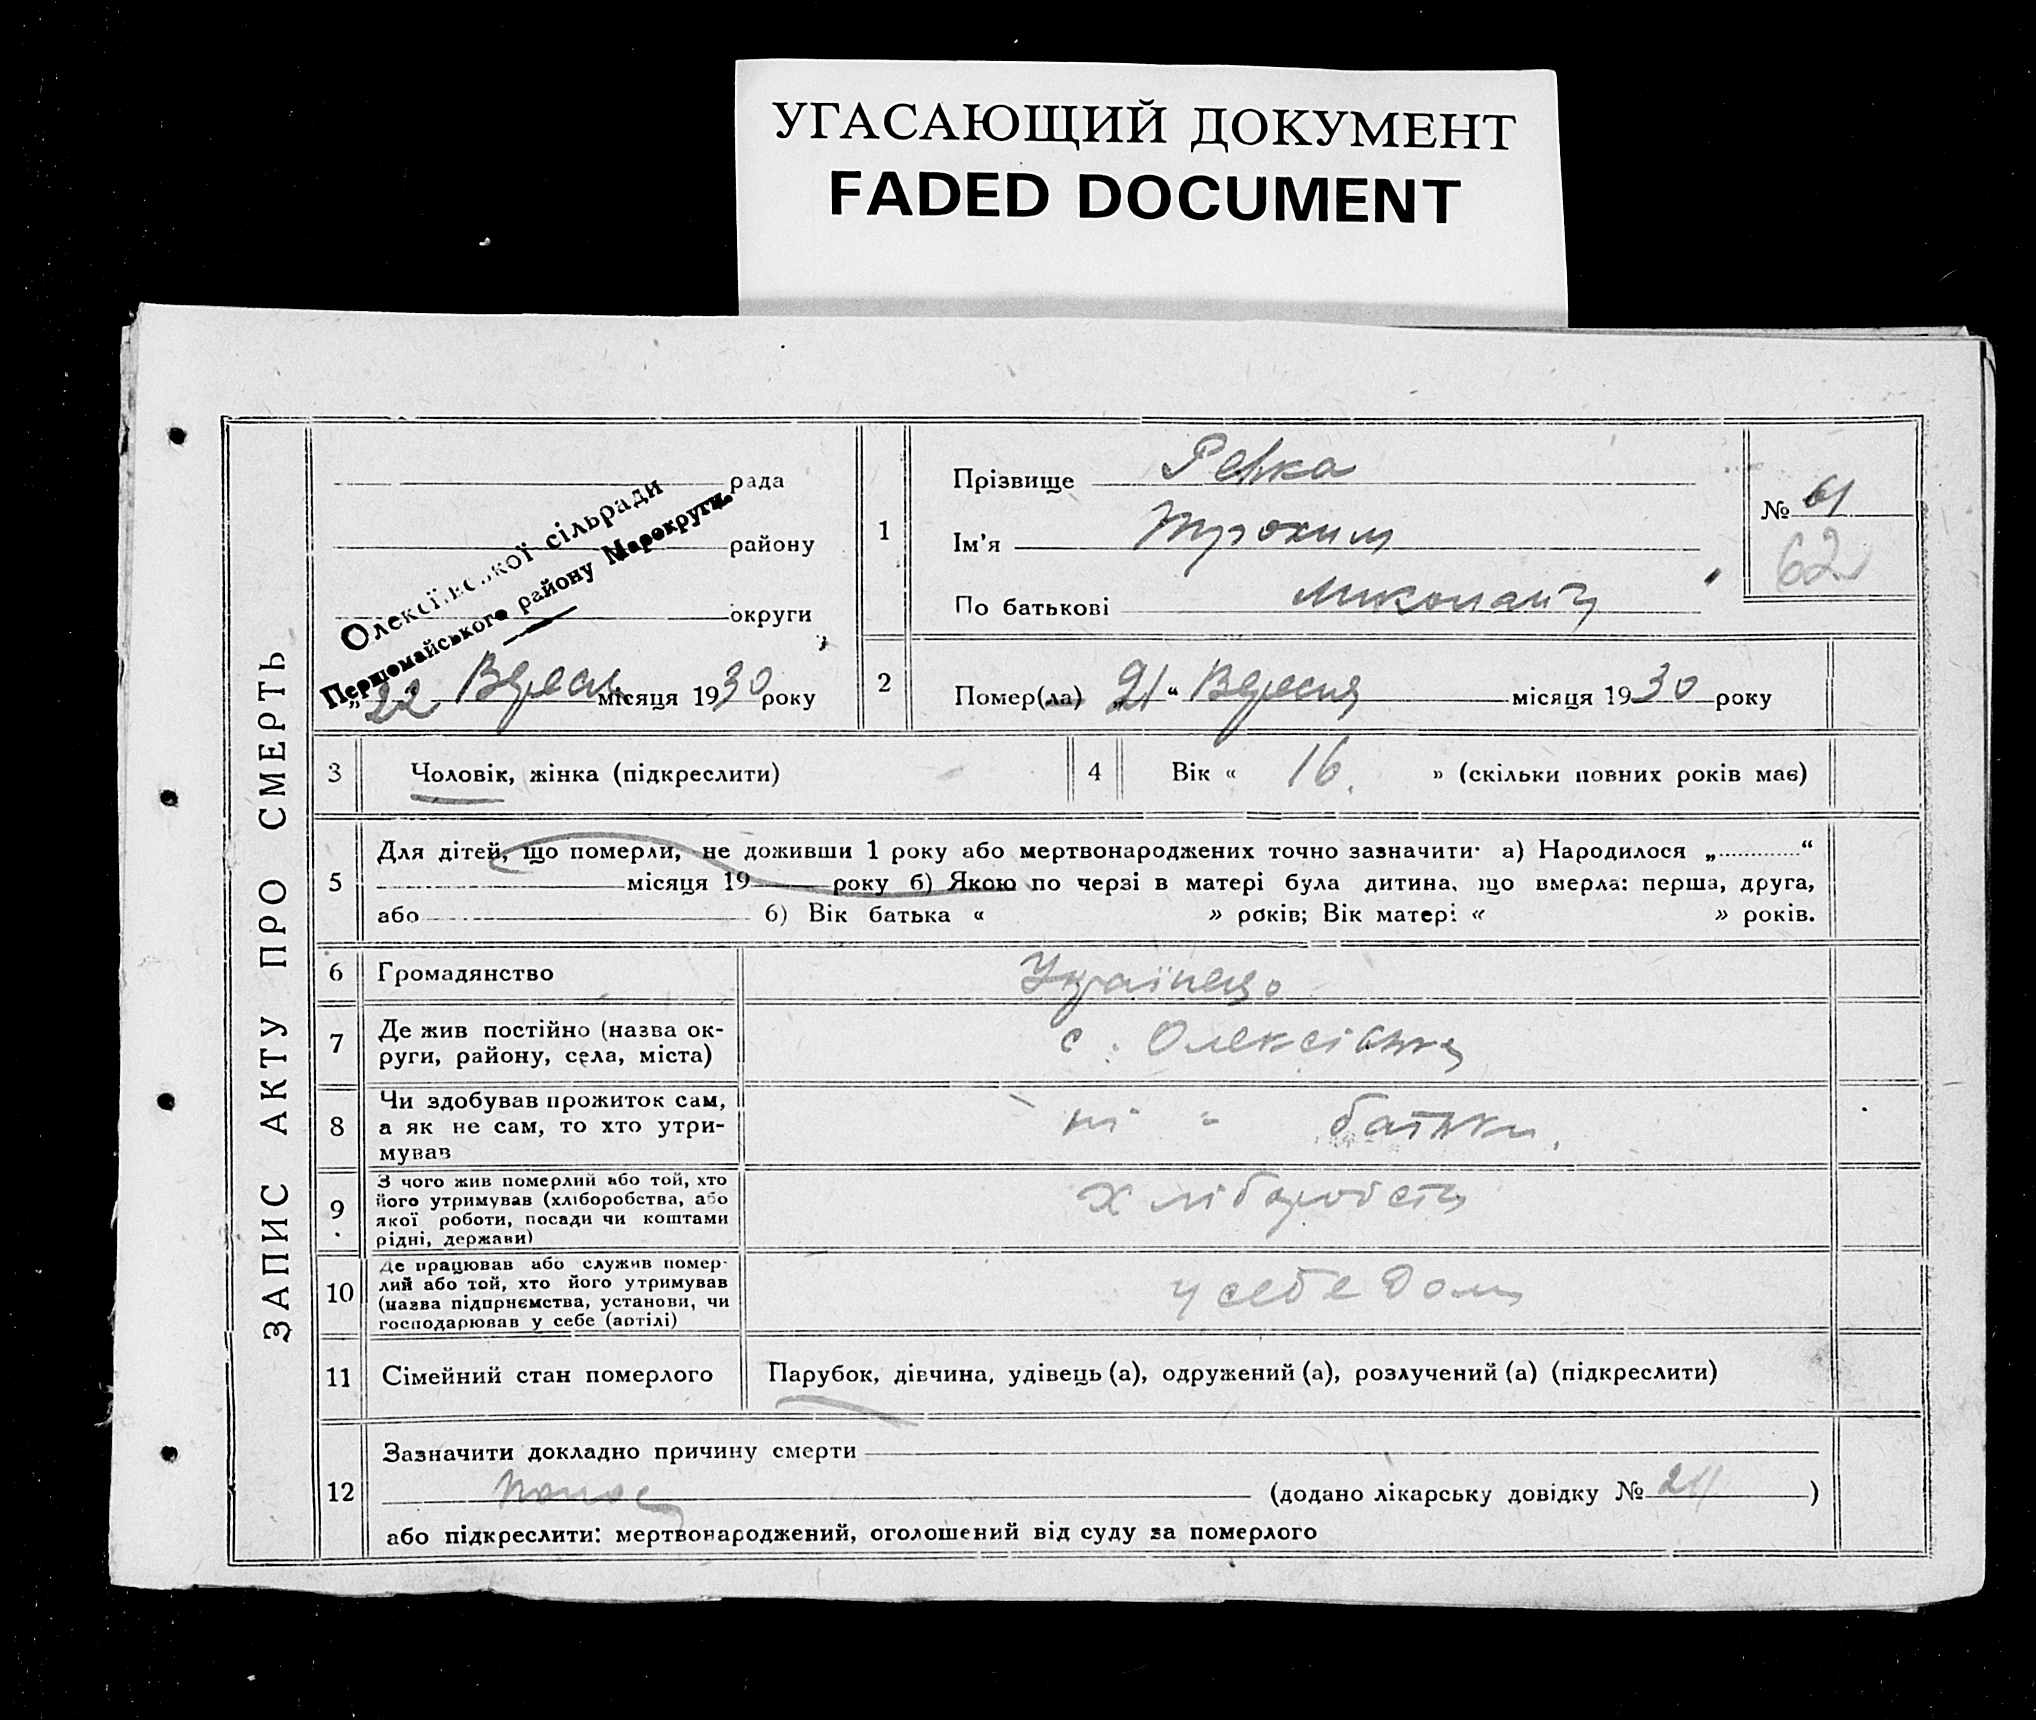 УГАСАЮЩИЙ ДОКУМЕНТ
FADED DOCUMENT
ЗАПИС АКТУ ПРО СМЕРТЬ
рада
району
округи
Олексіївської сільради
Першомайського району Марокруги.
„22 Вересн місяця 1930 року
1
Прізвище Репка
Ім'я Трохим
По батькові
№ 61
62
2
Помер(ла) „21“ Вересня місяця 1930 року
3
Чоловік, жінка (підкреслити)
4
Вік « 16. » (скільки повних років має)
5
Для дітей, що померли, не доживши 1 року або мертвонароджених точно зазначити· а) Народилося „............“
місяця 19 року б) Якою по черзі в матері була дитина, що вмерла: перша, друга,
або 6) Вік батька « » років; Вік матері « » років.
6
Громадянство
Українець
7
Де жив постійно (назва ок-
руги, району, села, міста)
с. Олексіївка
8
Чи здобував прожиток сам,
а як не сам, то хто утри-
мував
ні - батьки.
9
З чого жив померлий або той, хто
його утримував (хліборобства, або
якої роботи, посади чи коштами
рідні, держави)
хліборобств
10
Де працював або служив помер-
лий або той, хто його утримував
(назва підпрнємства, установи, чи
господарював у себе (артілі)
у себе дома
11
Сімейний стан померлого
Парубок, дівчина, удівець (а), одружений (а), розлучений (а) (підкреслити)
12
Зазначити докладно причину смерти
(додано лікарську довідку № )
або підкреслити: мертвонароджений, оголошений від суду за померлого